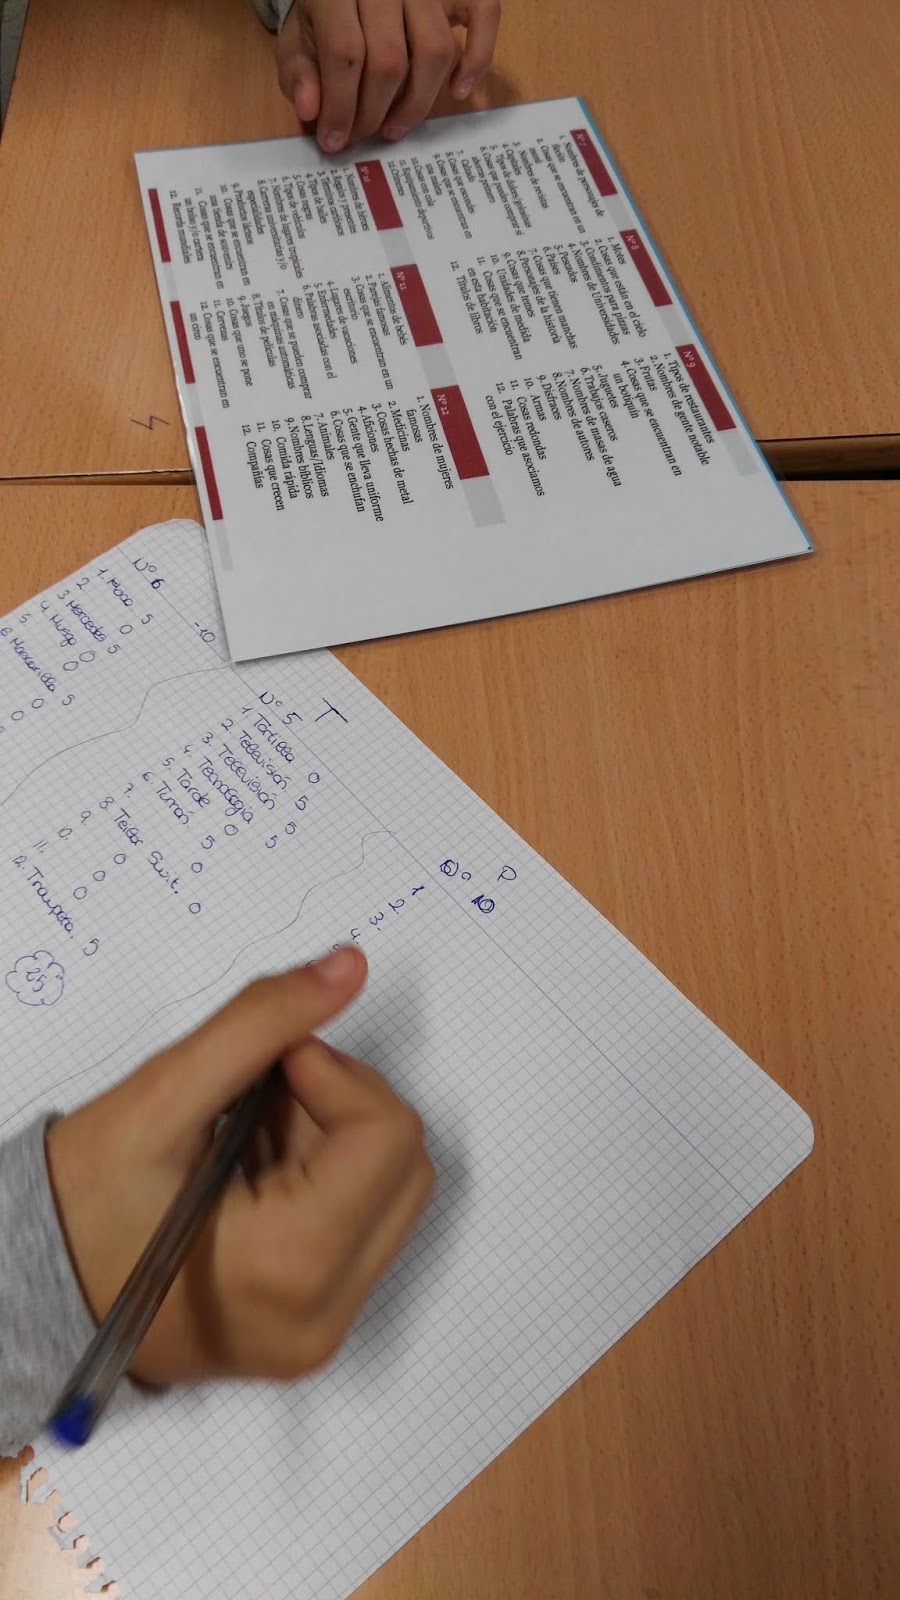 Nº 7
1. Nombres de personajes de
ficción
2. Cosas que se encuentran en un
menú
3. Nombres de revistas
4. Capitales
5. Tipos de dulces/golosinas
6. Cosas que puedes comprar si
ahorras primero
7. Calzado
8. Cosas que escondes
9. Cosas que se encuentran en
una maleta
10. Cosas con cola
11. Equipamiento deportivo
12. Crímenes
Nº 8
1. Motes
2. Cosas que están en el cielo
3. Condimentos para pizzas
4. Nombres de Universidades
5. Pescados
6. Países
7. Cosas que tienen manchas
8. Personajes de la historia
9. Cosas que temes
10. Unidades de medida
11. Cosas que se encuentran
en esta habitación
12. Títulos de libros
Nº 9
1. Tipos de restaurantes
2. Nombres de gente notable
3. Frutas
4. Cosas que se encuentran en
un botiquín
5. Juguetes
6. Trabajos caseros
7. Nombres de masas de agua
8. Nombres de autores
9. Disfraces
10. Armas
11. Cosas redondas
12. Palabras que asociamos
con el ejército
Nº 10
1. Nombres de héroes
2. Regalos y presentes
3. Términos cariñosos
4. Tipos de baile
5. Cosas negras
6. Tipos de vehículos
7. Nombres de lugares tropicales
8. Carreras universitarias y/o
especialidades
9. Productos lácteos
10. Cosas que se encuentran en
una tienda de souvenirs
11. Cosas que se encuentran en
un bolso y/o cartera
12. Records mundiales
Nº 11
1. Alimentos de bebés
2. Parejas famosas
3. Cosas que se encuentran en un
escritorio
4. Lugares de vacaciones
5. Enfermedades
6. Palabras asociadas con el
dinero
7. Cosas que se pueden comprar
en máquinas automáticas
8. Títulos de películas
9. Juegos
10. Cosas que uno se pone
11. Cervezas
12. Cosas que se encuentran en
un circo
Nº 12
1. Nombres de mujeres
famosas
2. Medicinas
3. Cosas hechas de metal
4. Aficiones
5. Gente que lleva uniforme
6. Cosas que se enchufan
7. Animales
8. Lenguas/Idiomas
9. Nombres bíblicos
10. Comida rápida
11. Cosas que crecen
12. Compañías
Nº 6
-10
1. Moco 5
2 0
3 Mercedes 5
4 0
5. 0
6 Mascarilla 5
0
0
T
Nº 5
1 Tortilla 0
2. Televisión 5
3. Televisión 5
4. Tecnología 5
5. Tarde 0
6. Turrón. 5
7. 0
8. Teilor Swit. 0
9. 0
10. 0
11. 0
12. Trompeta. 5
25
P
10
1
2.
3.
4.